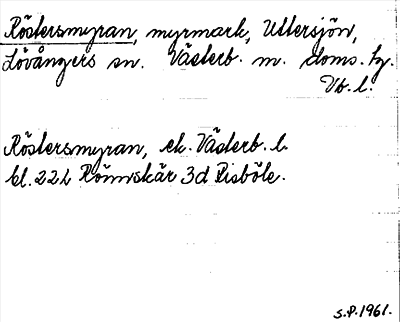 Röstersmyran, myrmark, Uttersjön,
Lövångers sn. Västerb. m. doms. tg.
Vb. l.
Röstersmyran, ek. Västerb. l.
bl. 22 L Rönnskär 3d Risböle.
S.P. 1961.